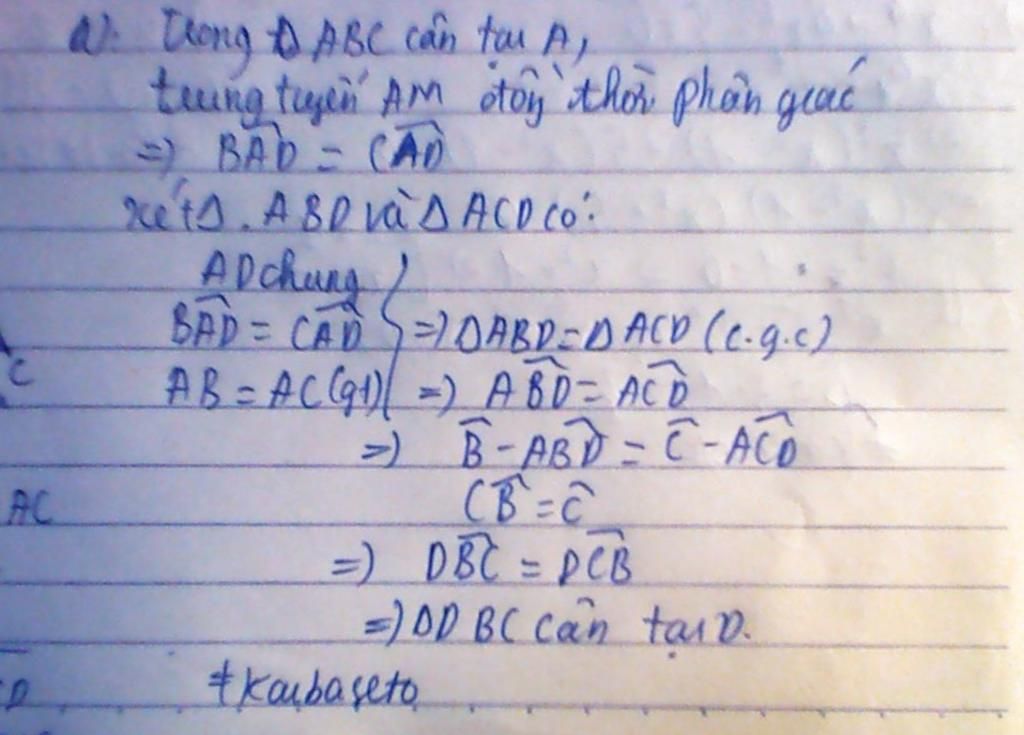 a). Trong Δ ABC cân tại A,
trung tuyến AM đồng thời phân giác
=> BÂD = CÂD
xét Δ. ABD và Δ ACD có:
AD chung
BÂD = CÂD => ΔABD = Δ ACD (c.g.c)
C
AB = AC (gt) => AB̂D = AĈD
=> B̂ - AB̂D = Ĉ - AĈD
AC
(B̂ = Ĉ
=> DB̂C = DĈB
=> ΔDBC cân tại D.
D
#Kaibaseto